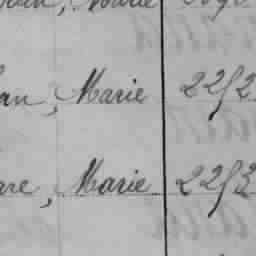 Marie
an, Marie 2252
are, Marie 2253